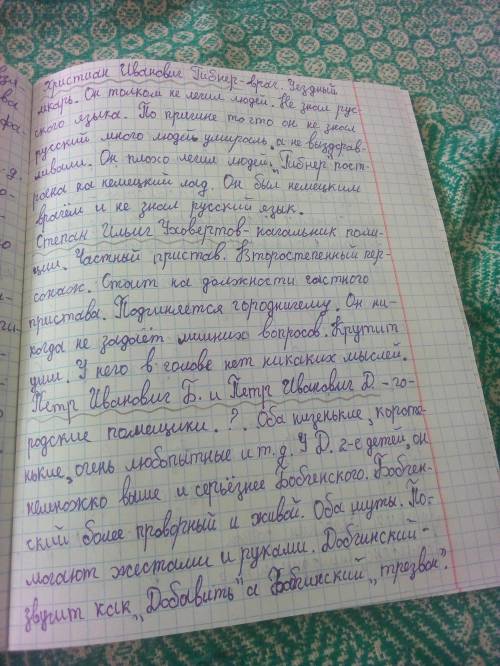 Христиан Иванович Гибнер-врач. Уездный
лекарь. Он толком не лечил людей. Не знал рус-
ского языка. По причине того что он не знал
русский много людей умирало, а не выздорав-
ливали. Он плохо лечил людей. "Гибнер" пост-
роена на немецкий лад. Он был немецким
врачём и не знал русский язык.
Степан Ильич Уховертов- начальник поли-
ции. Частный пристав. Второстепенный пер-
сонаж. Стоит на должности частного
пристава. Подчиняется городничему. Он ни-
когда не задаёт лишних вопросов. Крутит
У него в голове нет никаких мыслей.
Петр Иванович Б. и Петр Иванович Д. - го-
родские помещики. ?. Оба низенькие, корот-
нькие, очень любопытные и т.д. У Д. 2-е детей, он
немножко выше и серьёзнее Бобчинского. Бобчин-
ский более проворный и живой. Оба шуты. По-
могают жестами и руками. Добчинский -
звучит как "Добавить" а Бобчинский "трезвон".